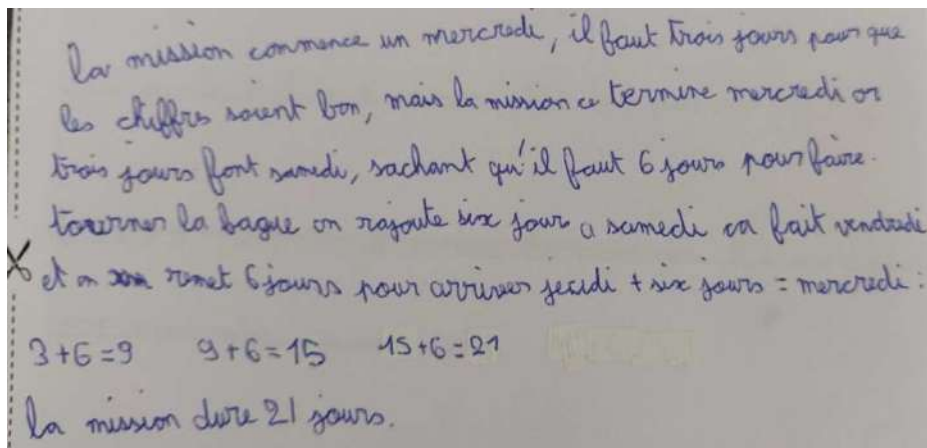 la mission commence un mercredi, il faut trois jours pour que
les chiffres soient bon, mais la mission ce termine mercredi or
trois jours font samedi, sachant qu'il faut 6 jours pour faire
tourner la bague on rajoute six jour a samedi ca fait vendredi
et on remet 6 jours pour arriver jeudi + six jours = mercredi :
3+6=9 9+6=15 15+6=21
la mission dure 21 jours.